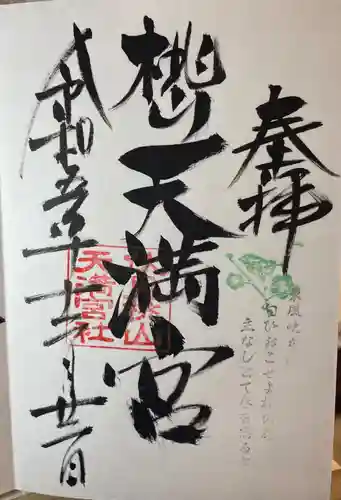 奉拝
天満宮
令和五年十二月廿一日
天満宮社
東風吹か
匂ひおこせよ梅の花
主なしとて春を忘るな